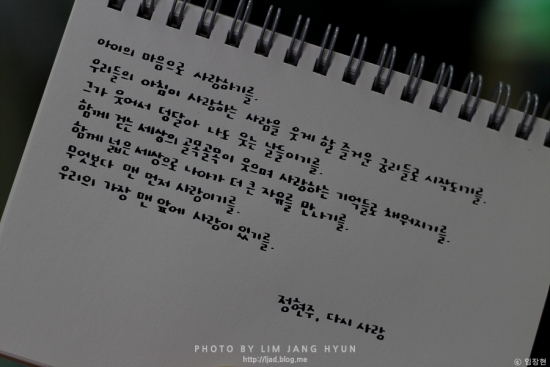 아이의 마음으로 사랑하기를.
우리들의 아침이 사랑하는 사람을 웃게 할 즐거운 궁리들로 시작되기를.
그가 웃어서 덩달아 나도 웃는 날들이기를.
함께 걷는 세상의 골목골목이 웃으며 사랑하는 기억들로 채워지기를.
함께 넓은 세상으로 나아가 더 큰 자유를 만나기를.
무엇보다 맨 먼저 사랑이기를.
우리의 가장 맨 앞에 사랑이 있기를.
정현주, 다시 사랑
PHOTO BY LIM JANG HYUN
http://ljad.blog.me
© 임장현